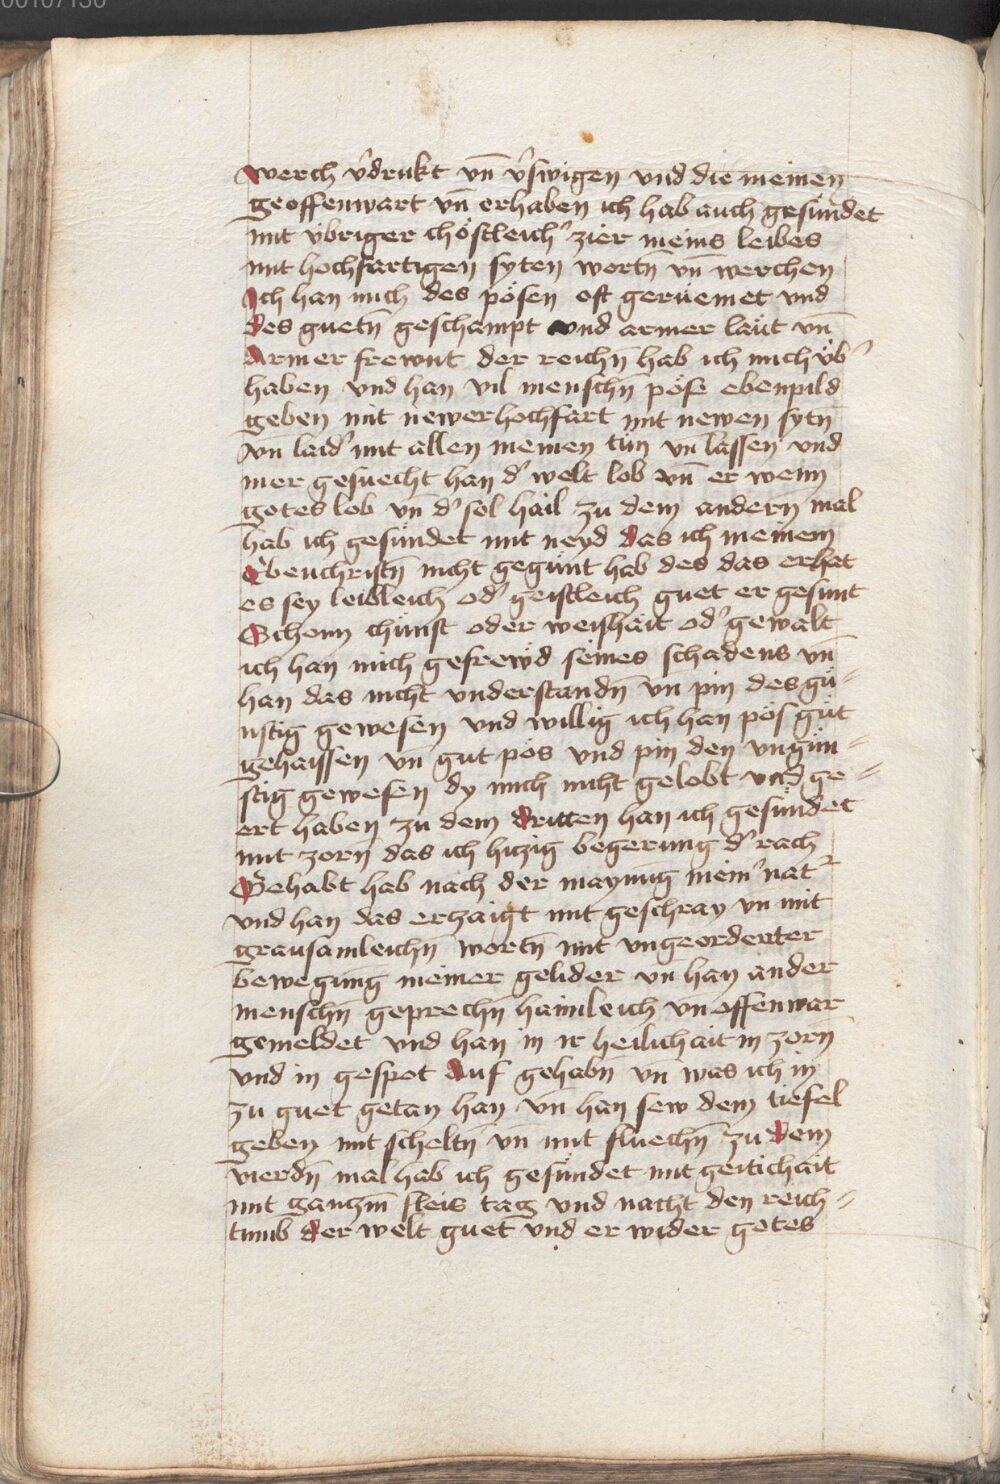 00107130
werch v̓drukt vn̄ v̓swigen vnd die meinen
geoffenwart vn̄ erhaben ich hab auch gesündet
mit vbriger chöstleich̓ zier meins leibes
mit hochfartigen syten wortn̄ vn̄ werchen
Ich han mich des pösen oft gerüemet vnd
des guetn̄ geschampt vnd armer läut vn̄
Armer frewnt der reichn̄ hab ich mich vb̓
haben vnd han vil menschn̄ pöse ebenpild
geben mit newer hochfart mit newen sytn̄
vn̄ laid̓ mit allen meinen tün vn̄ lassen vnd
mer gesuecht han d̓ welt lob vn̄ er wenn
gotes lob vn̄ d̓ sel hail zu dem andern̄ mal
hab ich gesündet mit neyd das ich meinem
Ebenchristn̄ nicht gegünt hab des das er hat
es sey leibleich od̓ geistleich guet er gesunt
Schenn chünst oder weishait od̓ gewalt
ich han mich gefrewd seines schadens vn̄
han das nicht vnderstandn̄ vn̄ pin des gü-
nstig gewesen vnd willig ich han pös güt
gehaissen vn̄ gut pös vnd pin den vngün-
stig gewesen dy mich nicht gelobt vnd ge-
ert haben zu dem dritten han ich gesündet
mit zorn̄ das ich hiczig begerung d̓ rach
Gehabt hab nach der maynūg mein̓ nat̓
vnd han das erczaigt mit geschray vn̄ mit
grausamleichn̄ wortn̄ mit vngeordenter
bewegung meiner gelider vn̄ han ander
menschn̄ geprechn̄ haimleich vn̄ offenwar
gemeldet vnd han in ir heilichait in zorn̄
vnd in gespot Auf gehabn̄ vn̄ was ich in
zu guet getan han vn̄ han sew dem tiefel
geben mit scheltn̄ vn̄ mit fluechn̄ zu dem
vierdn̄ mal hab ich gesündet mit geitichait
mit gancz̄m fleis tag vnd nacht den reich-
tumb der welt guet vnd er wider gotes